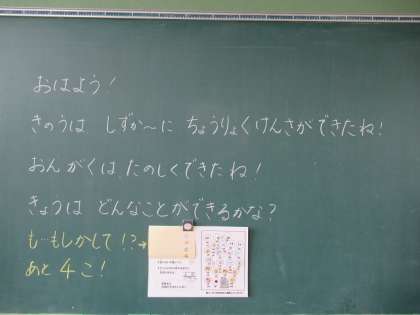 おはよう!
きのうは しずか〜に ちょうりょくけんさができたね!
おんがくは、たのしくできたね!
きょうは どんなことができるかな?
も…もしかして!?→
あと 4こ!